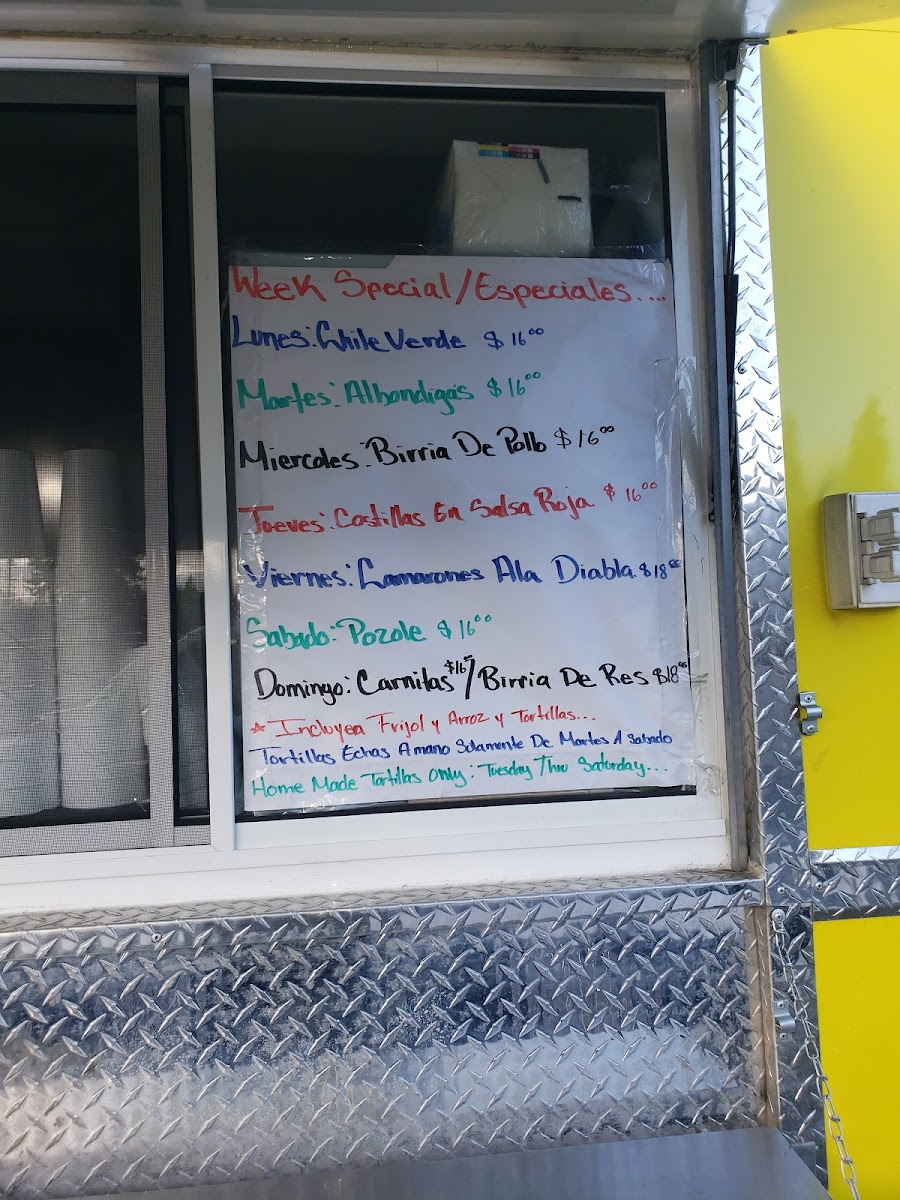 Week Special/Especiales....
Lunes: Chile Verde $16⁰⁰
Martes: Albondigas $16⁰⁰
Miercoles: Birria De Pollo $16⁰⁰
Jueves: Costillas En Salsa Roja $16⁰⁰
Viernes: Camarones Ala Diabla. $18⁰⁰
Sabado: Pozole $16⁰⁰
Domingo: Carnitas $16⁰⁰/Birria De Res $18⁰⁰
* Incluyen Frijol y Arroz y Tortillas...
Tortillas Echas Amano Solamente De Martes A Sabado
Home Made Tortillas Only: Tuesday Thru Saturday...